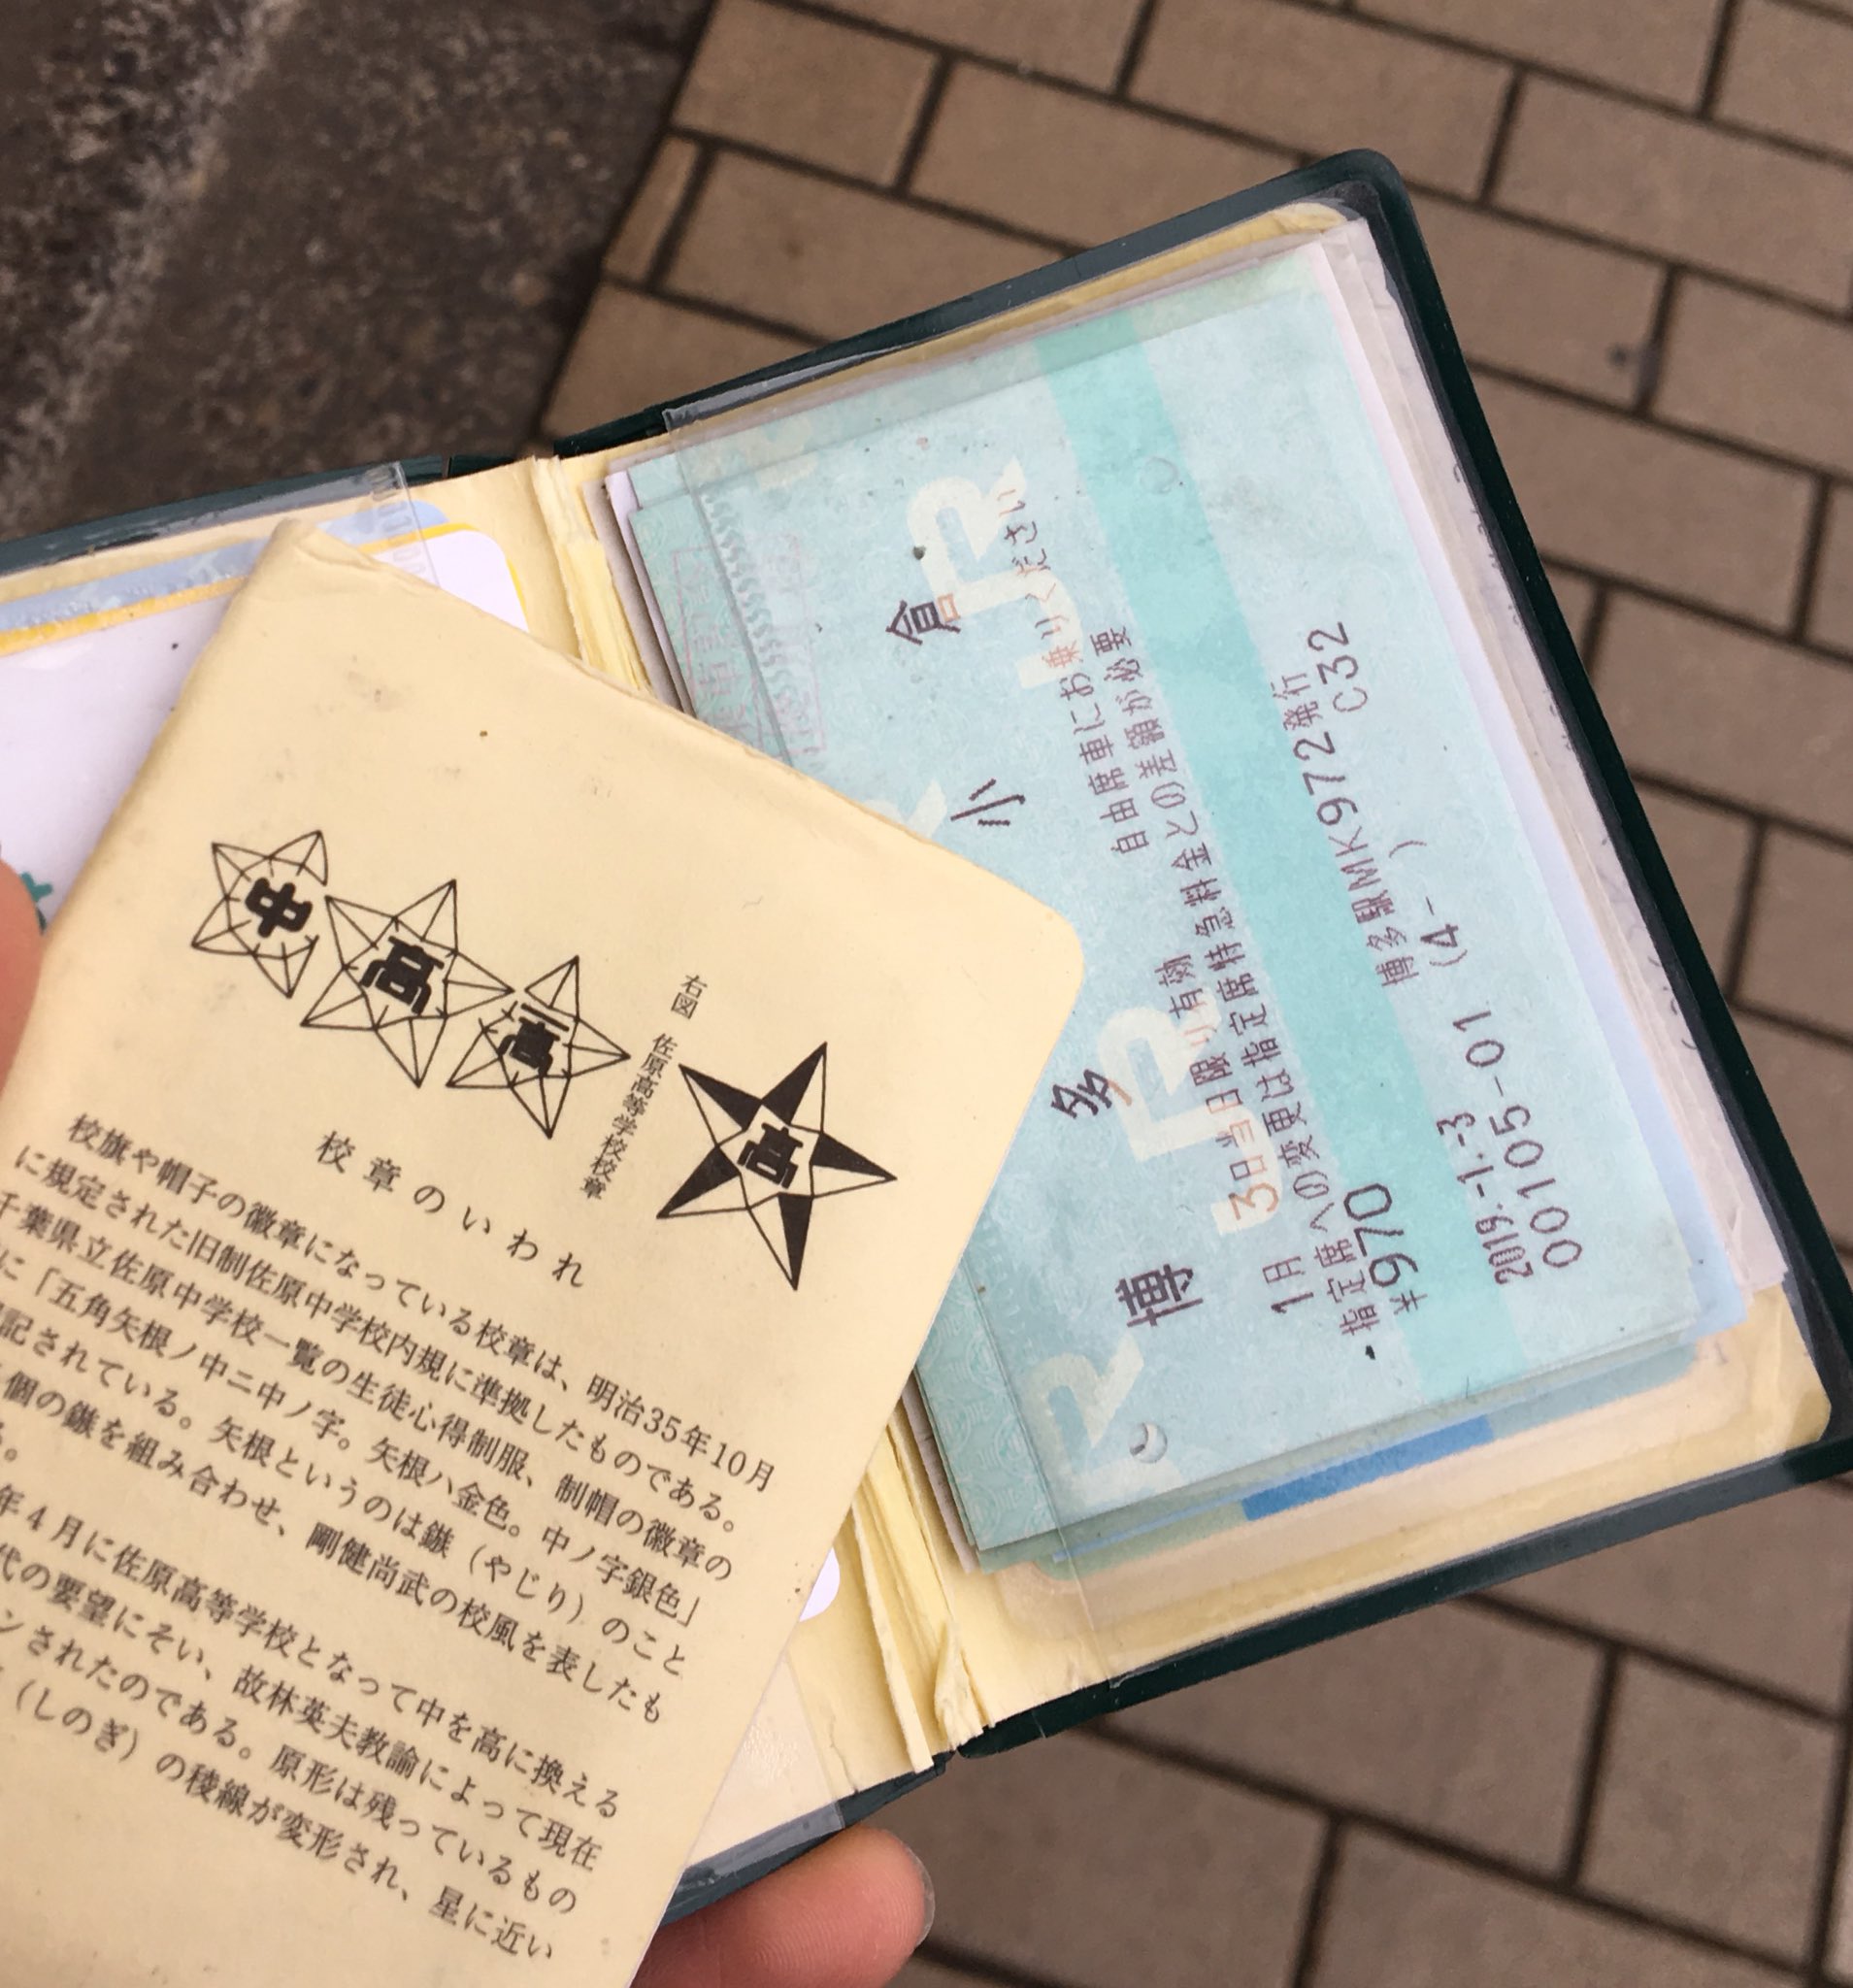 中
高
高
右図 佐原高等学校校章
高
校章のいわれ
校旗や帽子の徽章になっている校章は、明治35年10月
に規定された旧制佐原中学校内規に準拠したものである。
千葉県立佐原中学校一覧の生徒心得制服、制帽の徽章の
に「五角矢根ノ中ニ中ノ字。矢根ハ金色。中ノ字銀色」
記されている。矢根というのは鏃（やじり）のこと
個の鏃を組み合わせ、剛健尚武の校風を表したも
年4月に佐原高等学校となって中を高に換える
代の要望にそい、故林英夫教諭によって現在
ンされたのである。原形は残っているもの
（しのぎ）の稜線が変形され、星に近い
博多 小倉
自由席車にお乗りください
1月 3日当日限り有効
指定席への変更は指定席特急料金との差額が必要
¥970
博多駅MK972発行
2019.-1.-3 (4- ) C32
00105-01
JR
JR
R